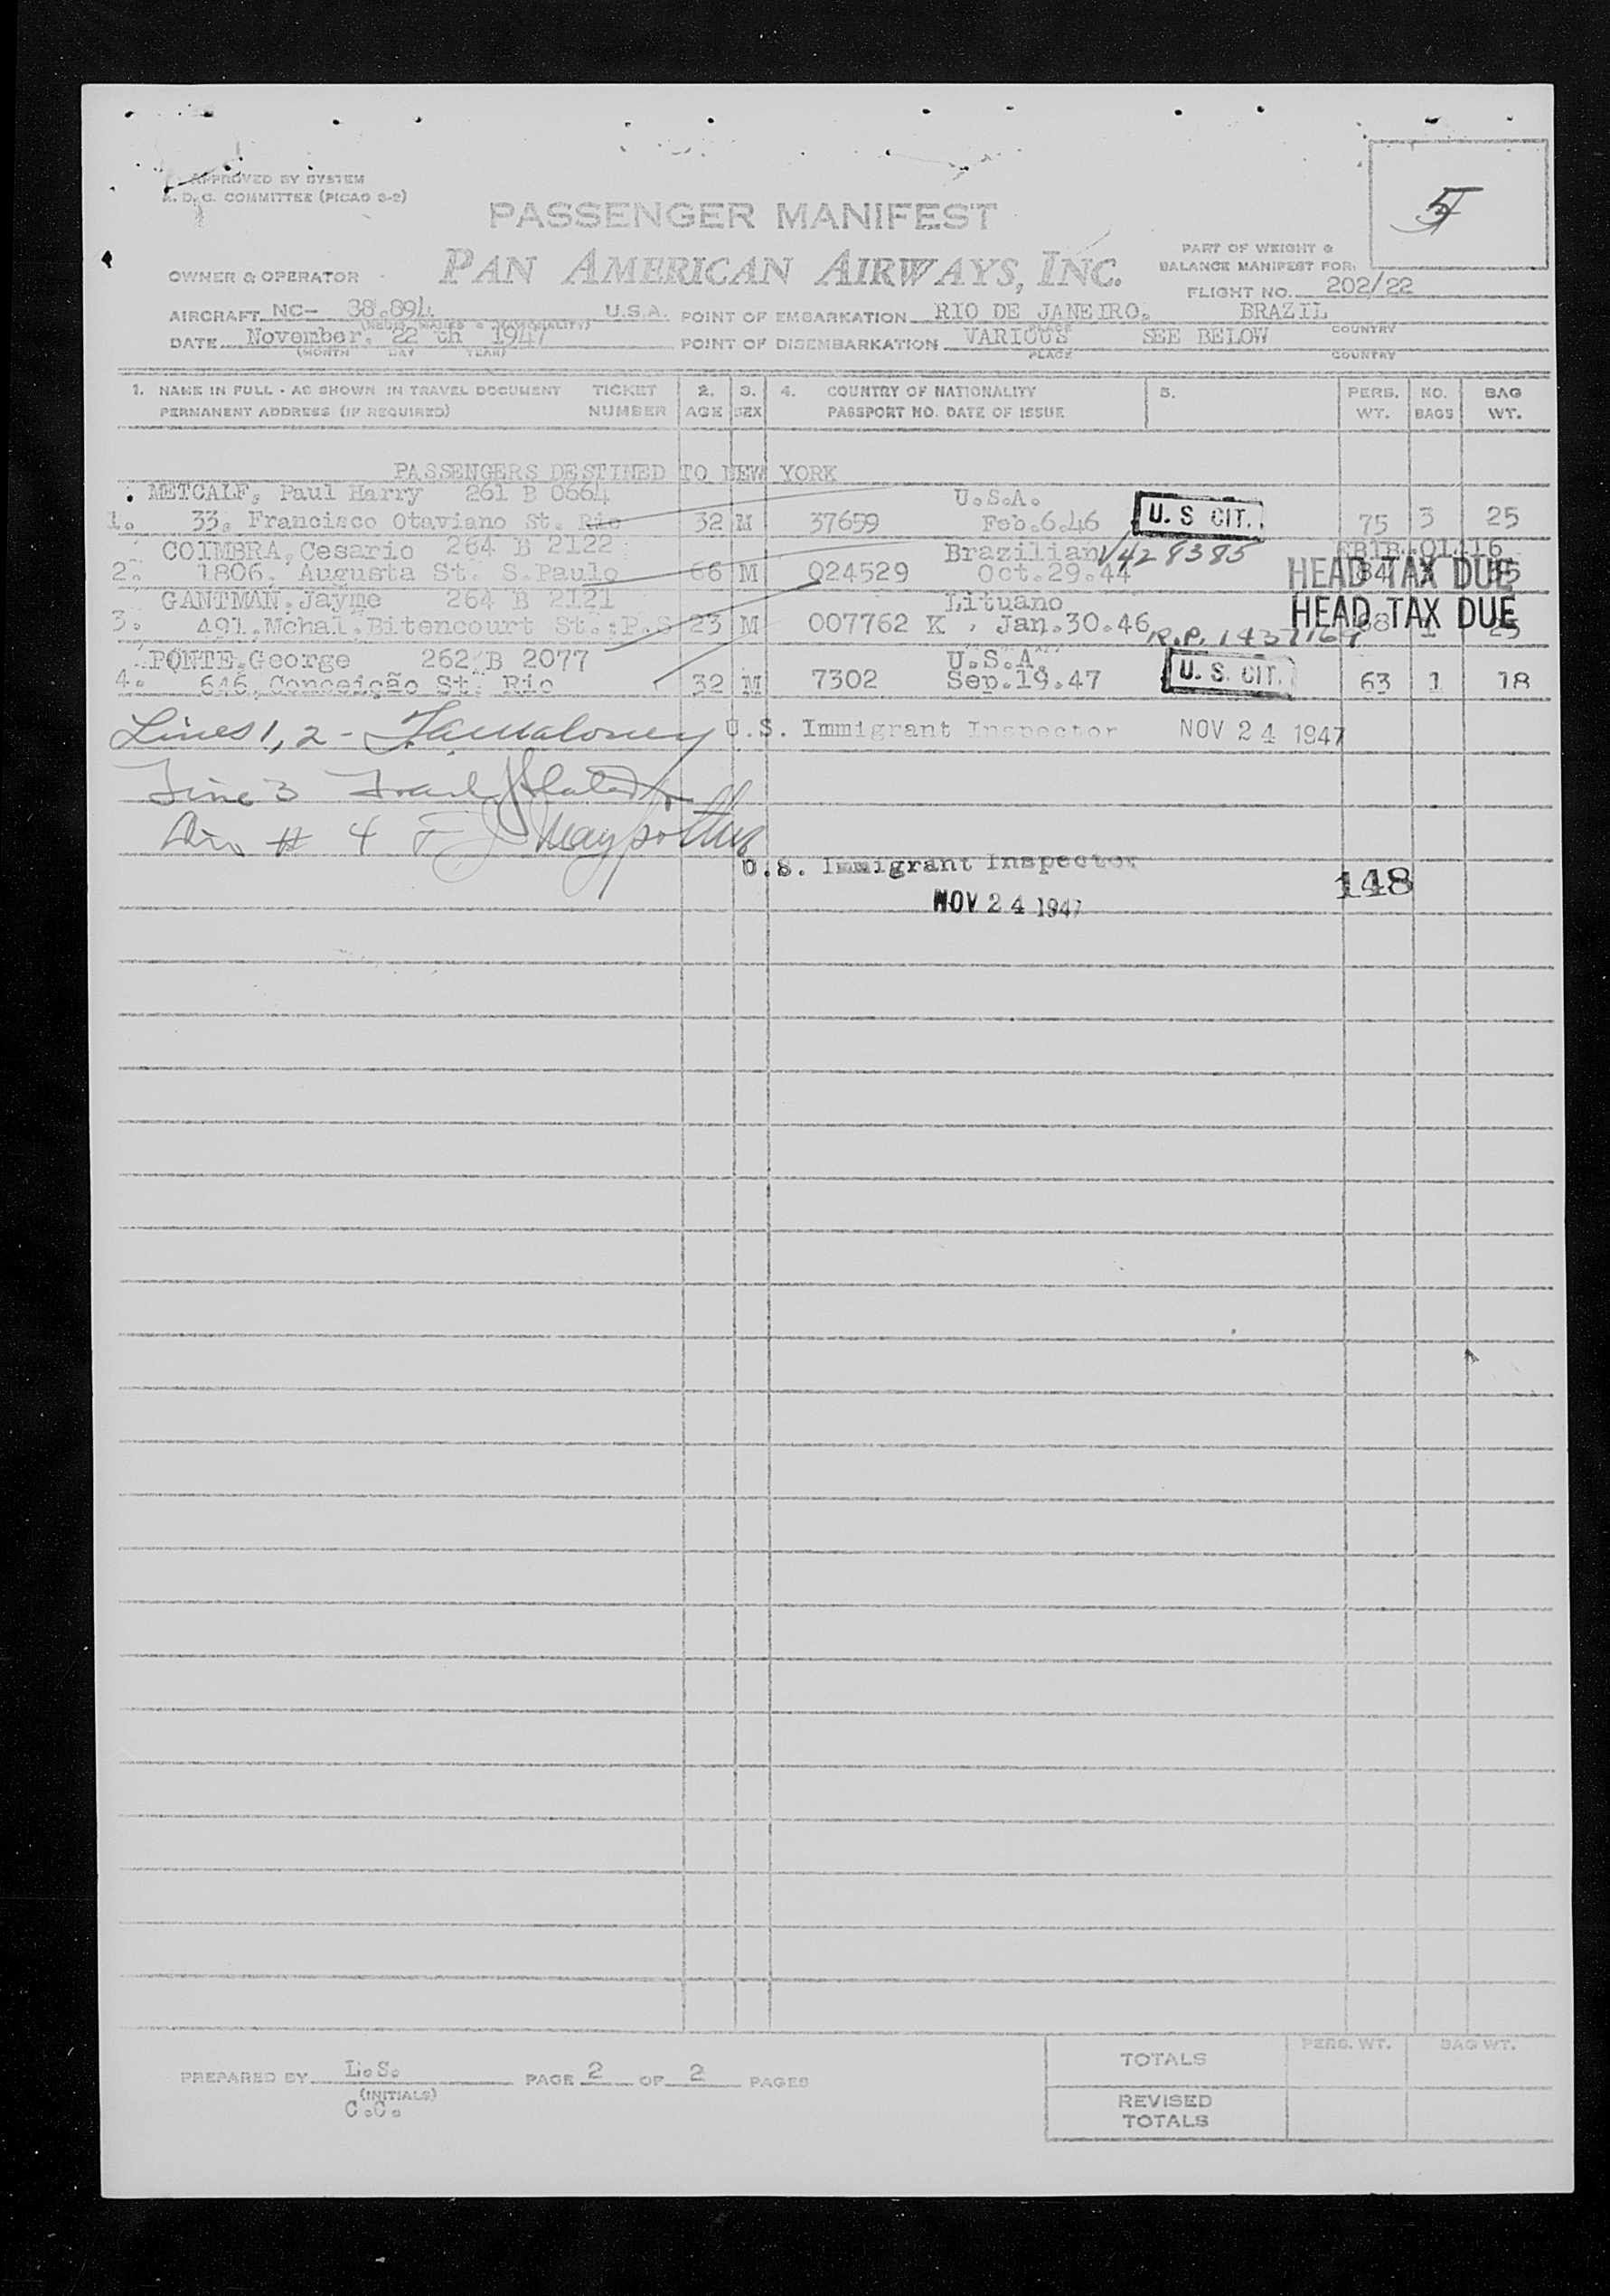 APPROVED BY SYSTEM
A. D. C. COMMITTEE (PICAO S-2)
5
PASSENGER MANIFEST
PART OF WEIGHT &
BALANCE MANIFEST FOR:
OWNER & OPERATOR PAN AMERICAN AIRWAYS, INC.
FLIGHT NO. 202/22
AIRCRAFT NC- 38.894 U.S.A. POINT OF EMBARKATION RIO DE JANEIRO. BRAZIL
PLACE COUNTRY
DATE November. 22 th 1947 POINT OF DISEMBARKATION VARIOUS SEE BELOW
(MONTH DAY YEAR) PLACE COUNTRY
1. NAME IN FULL - AS SHOWN IN TRAVEL DOCUMENT TICKET 2. 3. 4. COUNTRY OF NATIONALITY 5. PERS. NO. BAG
PERMANENT ADDRESS (IF REQUIRED) NUMBER AGE SEX PASSPORT NO. DATE OF ISSUE WT. BAGS WT.
PASSENGERS DESTINED TO NEW YORK
METCALF, Paul Harry 261 B 0664 U.S.A.
1. 33, Francisco Otaviano St. Rio 32 M 37659 Feb.6.46 U. S CIT. 75 3 25
COIMBRA, Cesario 264 B 2122 Brazilian V428385
2. 1806, Augusta St. S.Paulo 66 M 024529 Oct.29.44 HEAD TAX DUE
GANTMAN.Jayme 264 B 2121 Lituano
3. 491.Mchal.Bitencourt St.:P.S 23 M 007762 K Jan.30.46 R.P. 1437164 HEAD TAX DUE
PONTE,George 262 B 2077 U.S.A.
4. 646, Conceição St. Rio 32 M 7302 Sep.19.47 U. S. CIT. 63 1 18
Lines 1, 2 - U.S. Immigrant Inspector NOV 24 1947
Line 3
# 4
U.S. Immigrant Inspector 148
NOV 24 1947
PREPARED BY L.S. PAGE 2 OF 2 PAGES
(INITIALS)
C.C.
PERS. WT. BAG WT.
TOTALS
REVISED
TOTALS